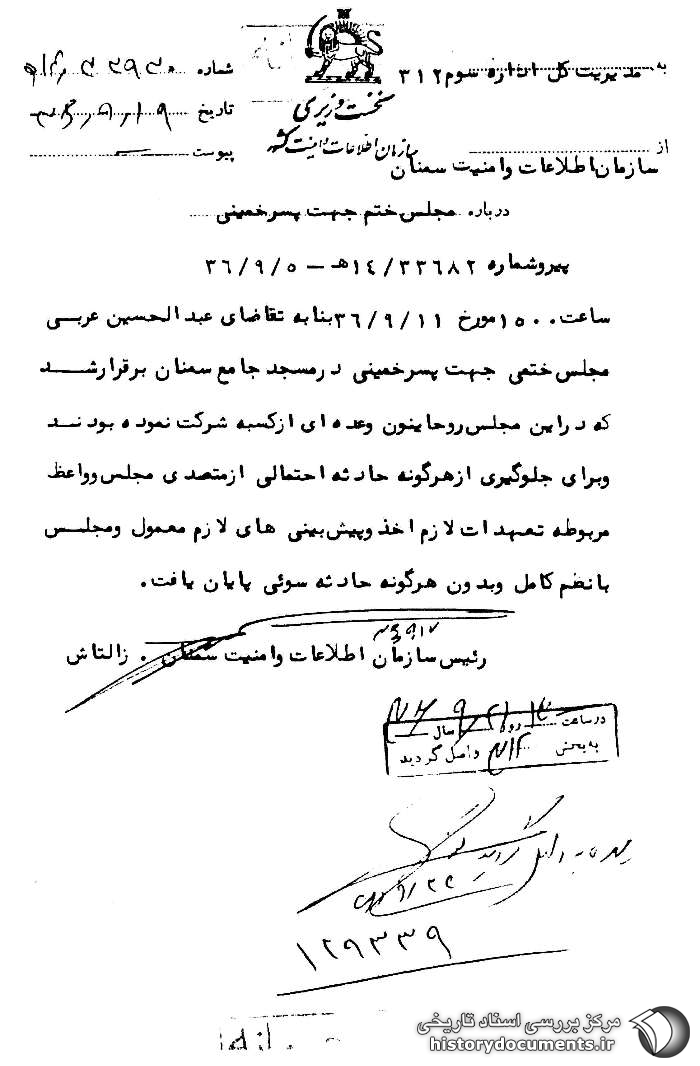 به مدیریت کل اداره سوم ۳۱۲
نخست وزیری
سازمان اطلاعات و امنیت کشور
شماره
تاریخ
پیوست
از
سازمان اطلاعات وامنیت سمنان
درباره مجلس ختم جهت پسرخمینی
پیروشماره ۱۴/۳۳۶۸۲ه‍ - ۳۶/۹/۵
ساعت ۱۵۰۰ مورخ ۳۶/۹/۱۱ بنابه تقاضای عبدالحسین عربی
مجلس ختمی جهت پسرخمینی درمسجد جامع سمنان برقرارشد
که دراین مجلس روحاینون وعده ای ازکسبه شرکت نموده بودند
وبرای جلوگیری ازهرگونه حادثه احتمالی ازمتصدی مجلس وواعظ
مربوطه تعهدات لازم اخذ وپیش بینی های لازم معمول ومجلس
بانظم کامل وبدون هرگونه حادثه سوئی پایان یافت.
رئیس سازمان اطلاعات وامنیت سمنان . زالتاش
درساعت روز سال
به بخش ۳۱۲ واصل گردید
۱۲۹۳۳۹
مرکز بررسی اسناد تاریخی
historydocuments.ir